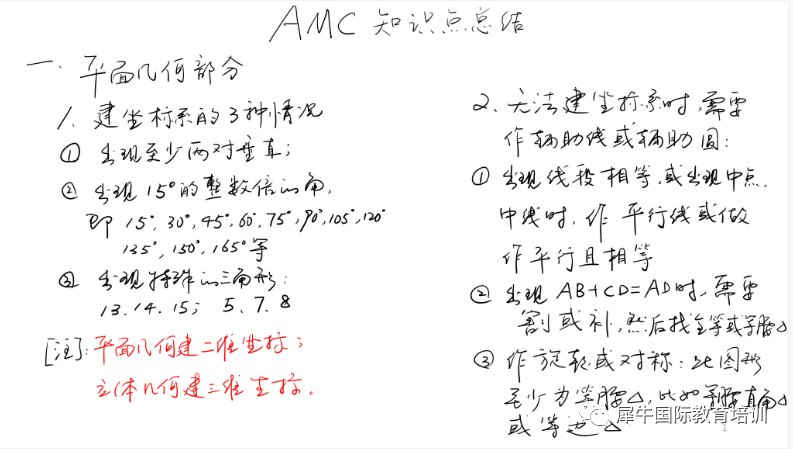 AMC 知识点总结
一. 平面几何部分
1. 建坐标系的3种情况
① 出现至少两对垂直;
② 出现15°的整数倍的角,
即 15°, 30°, 45°, 60°, 75°, 90°, 105°, 120°
135°, 150°, 165° 等
③ 出现特殊的三角形:
13. 14. 15; 5、7、8
[注]: 平面几何建二维坐标;
立体几何建三维坐标.
2. 无法建坐标系时, 需要
作辅助线或辅助圆:
① 出现线段相等, 或出现中点.
中线时, 作平行线或做
作平行且相等
② 出现 AB+CD=AD时, 需要
割或补, 然后找全等或等腰△
③ 作旋转或对称: 此图形
至少为等腰△, 比如等腰直角△
或等边△
犀牛国际教育培训